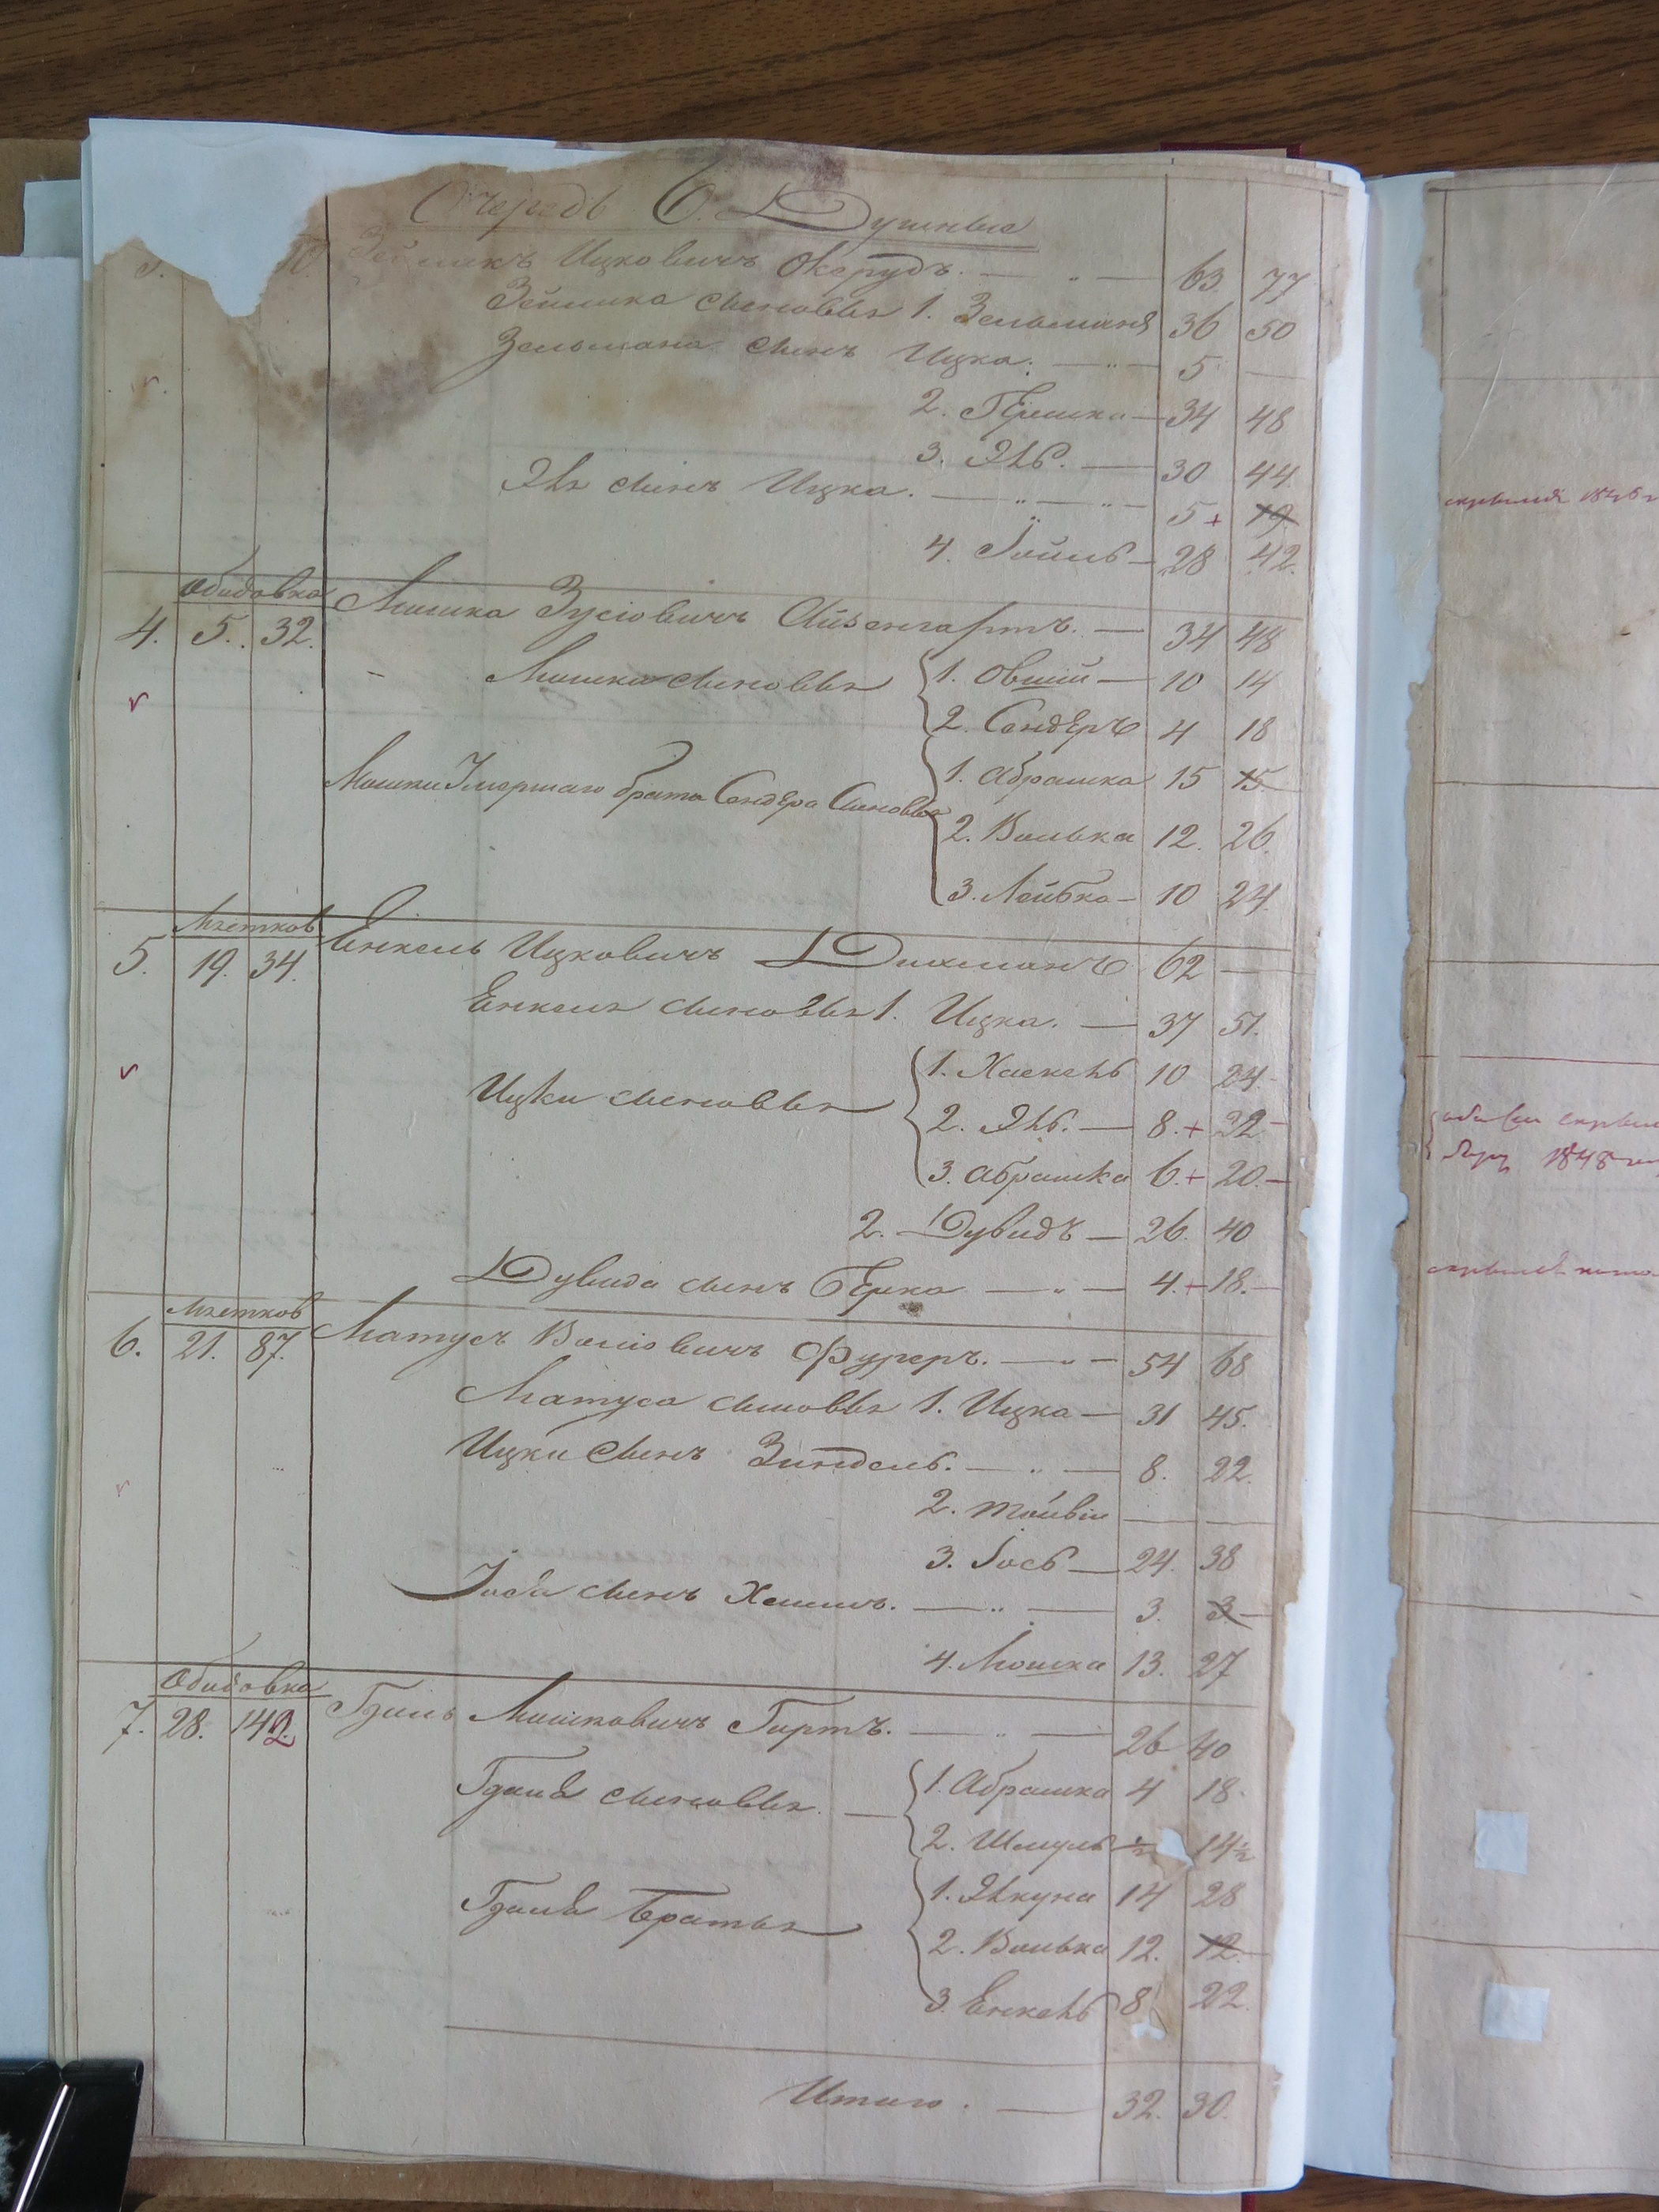 Очередь 6. Душныя
Зейликъ Ицковичъ Окарудъ. — " — 63. 77
Зейлика сыновья 1. Зельманъ 36 50
Зельмана сынъ Ицка. — " — 5 —
2. Гершко — 34 48
3. Эль. — 30 44.
Эля сынъ Ицка. — " — " — 5 + 19
4. Іойль — 28 42.
Обидовка
4. 5. 32. Мошка Зусіовичъ Айзенгартъ. — 34 48
Мошка сыновья 1. Овшій — 10 14
2. Сендеръ 4 18
Мошки Умершаго брата Сендера Сыновья 1. Абрашка 15 15
2. Волька 12. 26.
3. Лейбка — 10 24.
Мястков
5. 19. 34. Енкель Ицковичъ Дихманъ 62 —
Енкеля сыновья 1. Ицка. — 37 51.
Ицки сыновья 1. Хаскель 10 24. —
2. Эль. — 8. + 22 —
3. Абрашка 6. + 20. —
2. Дувидъ — 26. 40
Дувида сынъ Берко — " — 4. + 18. —
Мястков
6. 21. 87. Матусъ Воліовичъ Фуреръ. — " — 54 68
Матуса сыновья 1. Ицка — 31 45.
Ицки сынъ Зиндель. — " — 8. 22.
2. Тойвіи — —
3. Іось — 24. 38
Іося сынъ Хаимъ. — " — 3. 3. —
4. Мошка 13. 27
Обидовка
7. 28. 142. Гдаль Мошковичъ Гиртъ. — " — 26 40
Гдаля сыновья. — 1. Абрашка 4 18.
2. Шмуль ½ 14½
Гдаля братья 1. Элькуна 14 28
2. Волька 12. 12 —
3. Енкель 8 22.
Итого. — 32. 30.